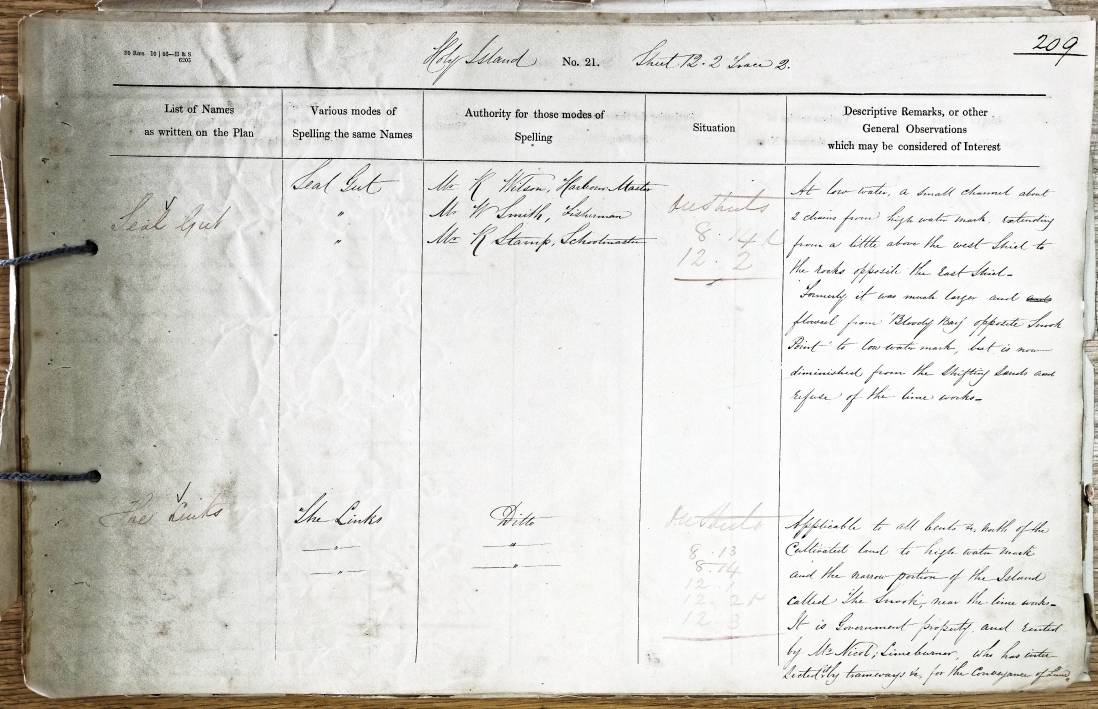 209
Holy Island No. 21. Sheet 12.2 Trace 2.
List of Names
as written on the Plan
Various modes of
Spelling the same Names
Authority for those modes of
Spelling
Situation
Descriptive Remarks, or other
General Observations
which may be considered of Interest
Seal Gut
Seal Gut
"
"
Mr R Wilson, Harbour Master
Mr W Smith, Fisherman
Mr R Stamp, Schoolmaster
On Sheets
8.14
12.2
At low water, a small channel about
2 chains from high water mark, extending
from a little above the west Shiel to
the rocks opposite the East Shiel-
Formerly it was much larger and
flowed from 'Bloody Bay' opposite Snook
Point to low water mark, but is now
diminished from the shifting sands and
refuse of the lime works-
The Links
The Links
"
"
Ditto
"
"
8.13
8.14
12.1
12.2
12.3
Applicable to all bents &c. north of the
Cultivated land to high water mark
and the narrow portion of the Island
called 'The Snook', near the lime works-
It is Government property and rented
by Mr Nicol; Limeburner, who has inter
sected it by tramways &c. for the Conveyance of Lime,